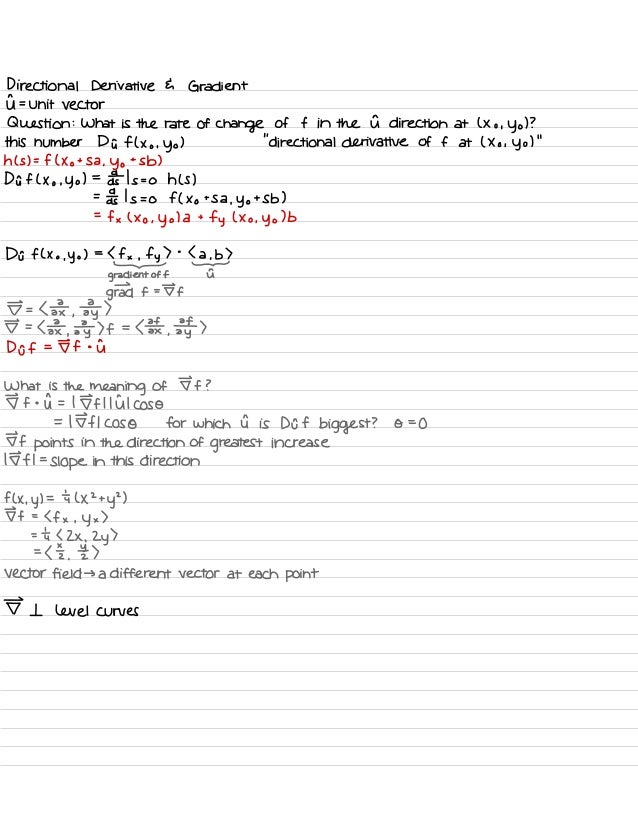 Directional Derivative & Gradient
û = unit vector
Question: What is the rate of change of f in the û direction at (x₀, y₀)?
this number Dû f(x₀, y₀) "directional derivative of f at (x₀, y₀)"
h(s) = f(x₀ + sa, y₀ + sb)
Dû f(x₀, y₀) = d/ds |s=0 h(s)
= d/ds |s=0 f(x₀ + sa, y₀ + sb)
= fx (x₀, y₀)a + fy (x₀, y₀)b
Dû f(x₀, y₀) = <fx, fy> · <a, b>
gradient of f û
grad f = ∇⃗f
∇⃗ = <∂/∂x, ∂/∂y>
∇⃗ = <∂/∂x, ∂/∂y>f = <∂f/∂x, ∂f/∂y>
Dûf = ∇⃗f · û
What is the meaning of ∇⃗f?
∇⃗f · û = |∇⃗f||û| cosθ
= |∇⃗f| cosθ for which û is Dûf biggest? θ = 0
∇⃗f points in the direction of greatest increase
|∇⃗f| = slope in this direction
f(x, y) = ¼(x² + y²)
∇⃗f = <fx, yx>
= ¼ <2x, 2y>
= <x/2, y/2>
vector field → a different vector at each point
∇⃗ ⊥ level curves